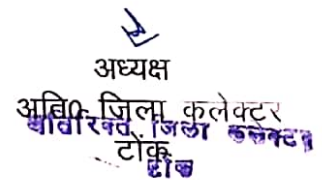 अध्यक्ष
अति० जिला कलेक्टर
अतिरिक्त जिला कलक्टर
टोंक
टोंक